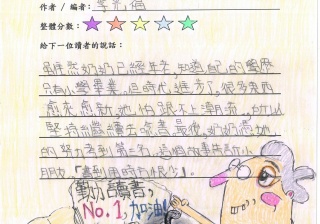 作者 / 編者:
整體分數:
給下一位讀者的說話:
雖然奶奶已經年老,知道自己的學歷
只有小學畢業,但時代進步了,很多東西
愈來愈新,她怕跟不上潮流,所以
堅持繼續去讀書,最後,奶奶
的努力考到第一名,這個故事告訴小
朋友「書到用時方恨少」。
勤力讀書,
No.1,加油!